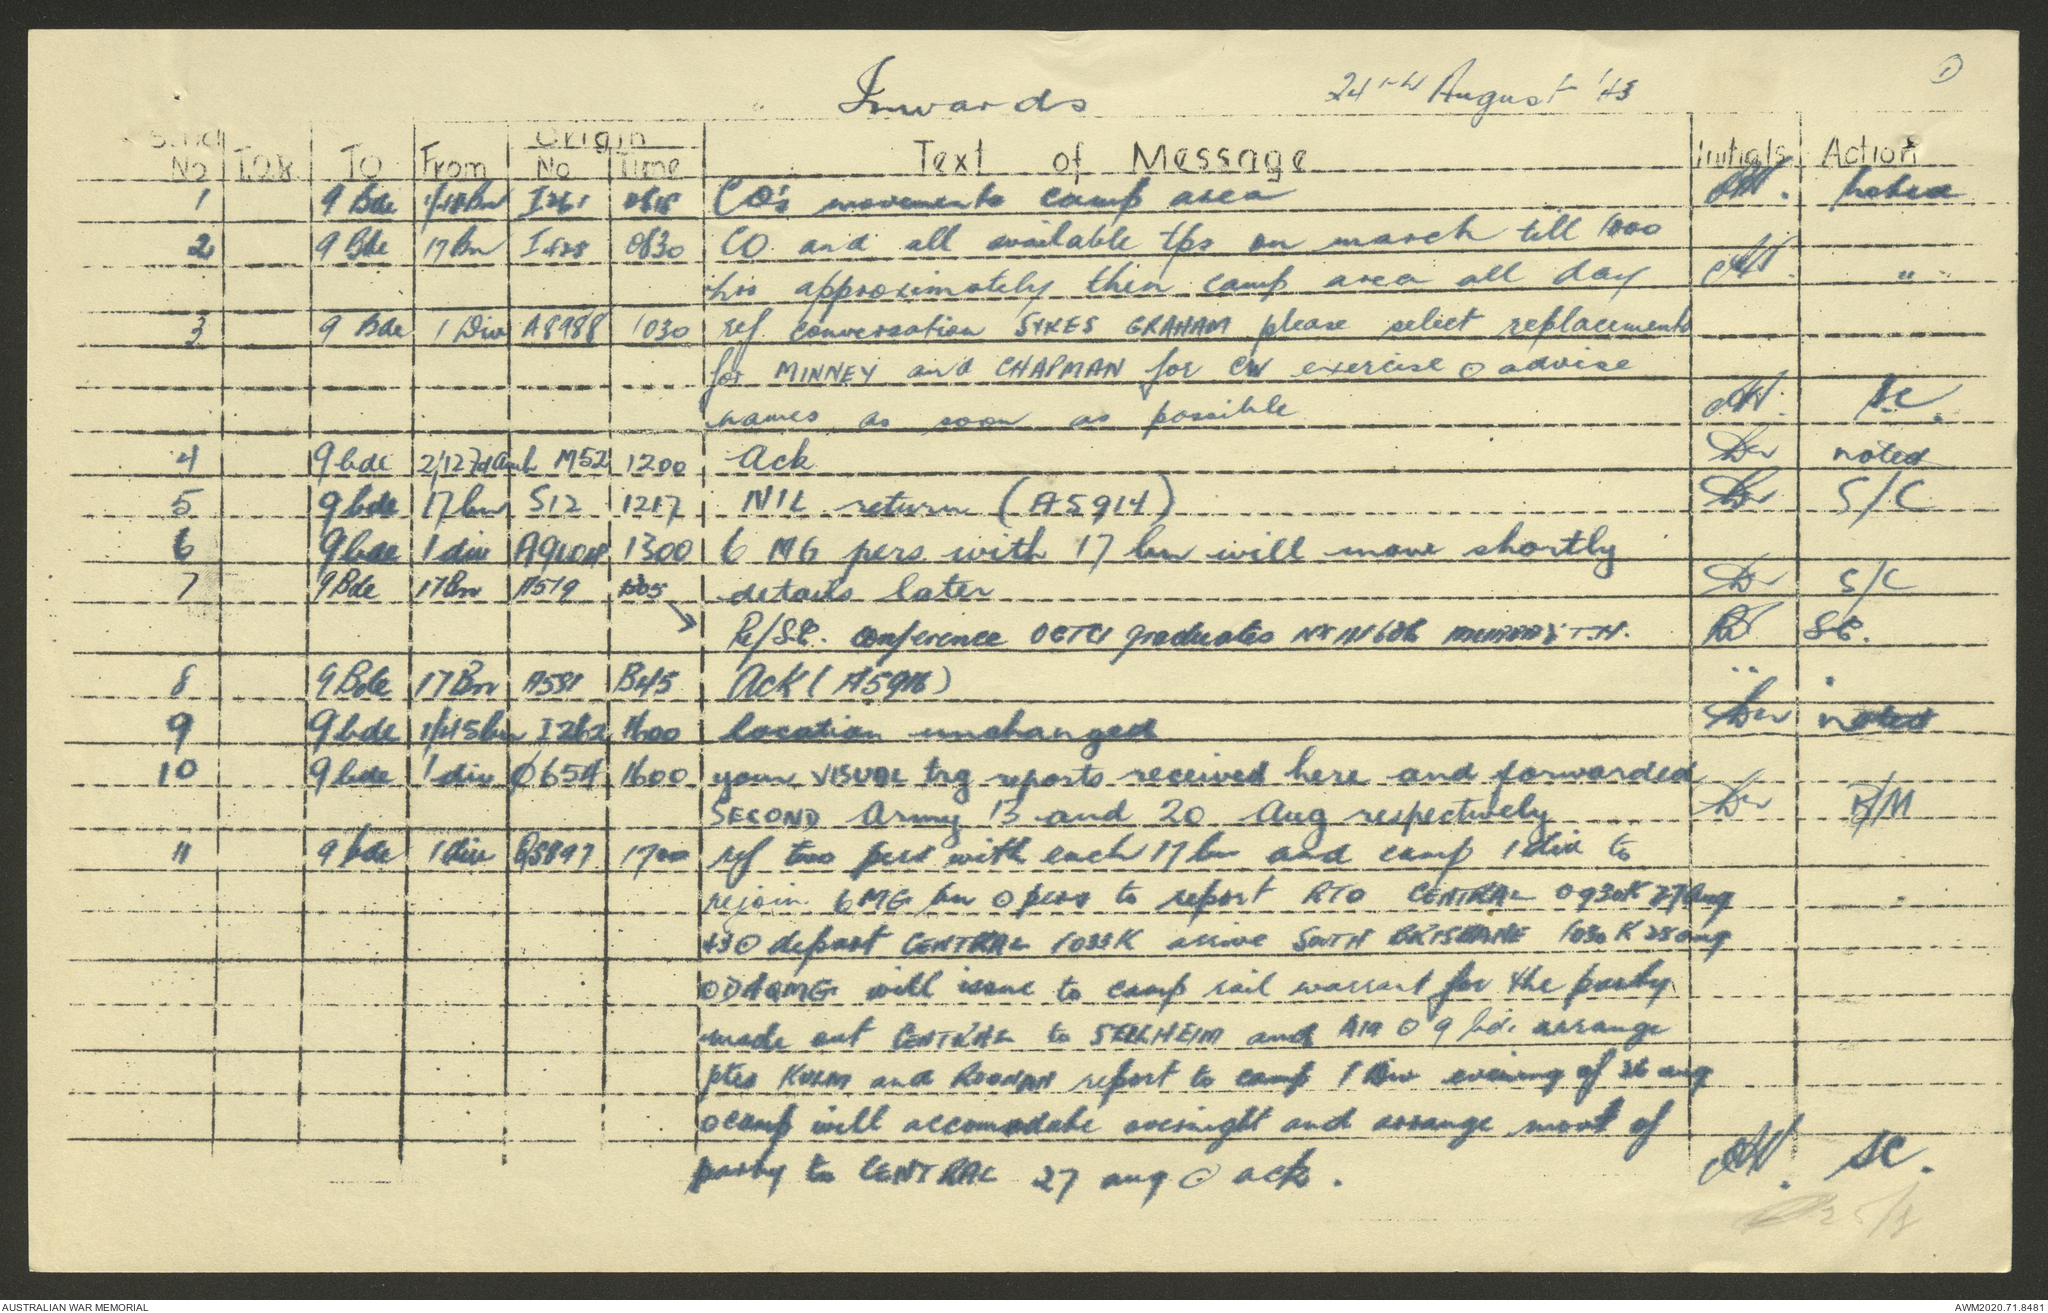 Inwards 24th August '43 1
Serial Origin
No TOR TO From No Time Text of Message Initials Action
1 9 Bde 1/18Bn I261 0815 CO's movements camp area noted
2 9 Bde 17 Bn I428 0830 CO and all available tps on march till 1000
hrs approximately then camp area all day "
3 9 Bde 1 Div A8988 1030 ref conversation SYKES GRAHAM please select replacements
for MINNEY and CHAPMAN for CW exercise o advise
names as soon as possible SC.
4 9 bde 2/12 Fd Amb M52 1200 Ack noted
5 9 bde 17 bn S12 1217 NIL return (A5914) S/C
6 9 bde 1 div 1300 6 MG pers with 17 bn will move shortly
7 9 Bde 17 Bn A579 1305 details later S/C
Re/S.C. conference OCTU graduates SC.
8 9 Bde 17 Bn A581 Ack (A5916) "
9 9 bde 1/45 bn I262 1600 location unchanged noted
10 9 bde 1 div O654 1600 your VISUAL trg reports received here and forwarded
SECOND Army 13 and 20 Aug respectively B/M
11 9 bde 1 div Q5897 1700 ref two pers with each 17 bn and camp 1 div to
rejoin 6 MG bn o pers to report RTO CENTRAL 0930K 27 Aug
43 o depart CENTRAL 1033K arrive SOUTH BRISBANE 1030K 28 aug
o DAQMG will issue to camp rail warrant for the party
made out CENTRAL to SELLHEIM and o 9 bde arrange
ptes and report to camp 1 Div evening of 26 aug
o camp will accomodate overnight and arrange movt of
party to CENTRAL 27 aug o ack. SC.
25/8
AUSTRALIAN WAR MEMORIAL AWM2020.71.8481